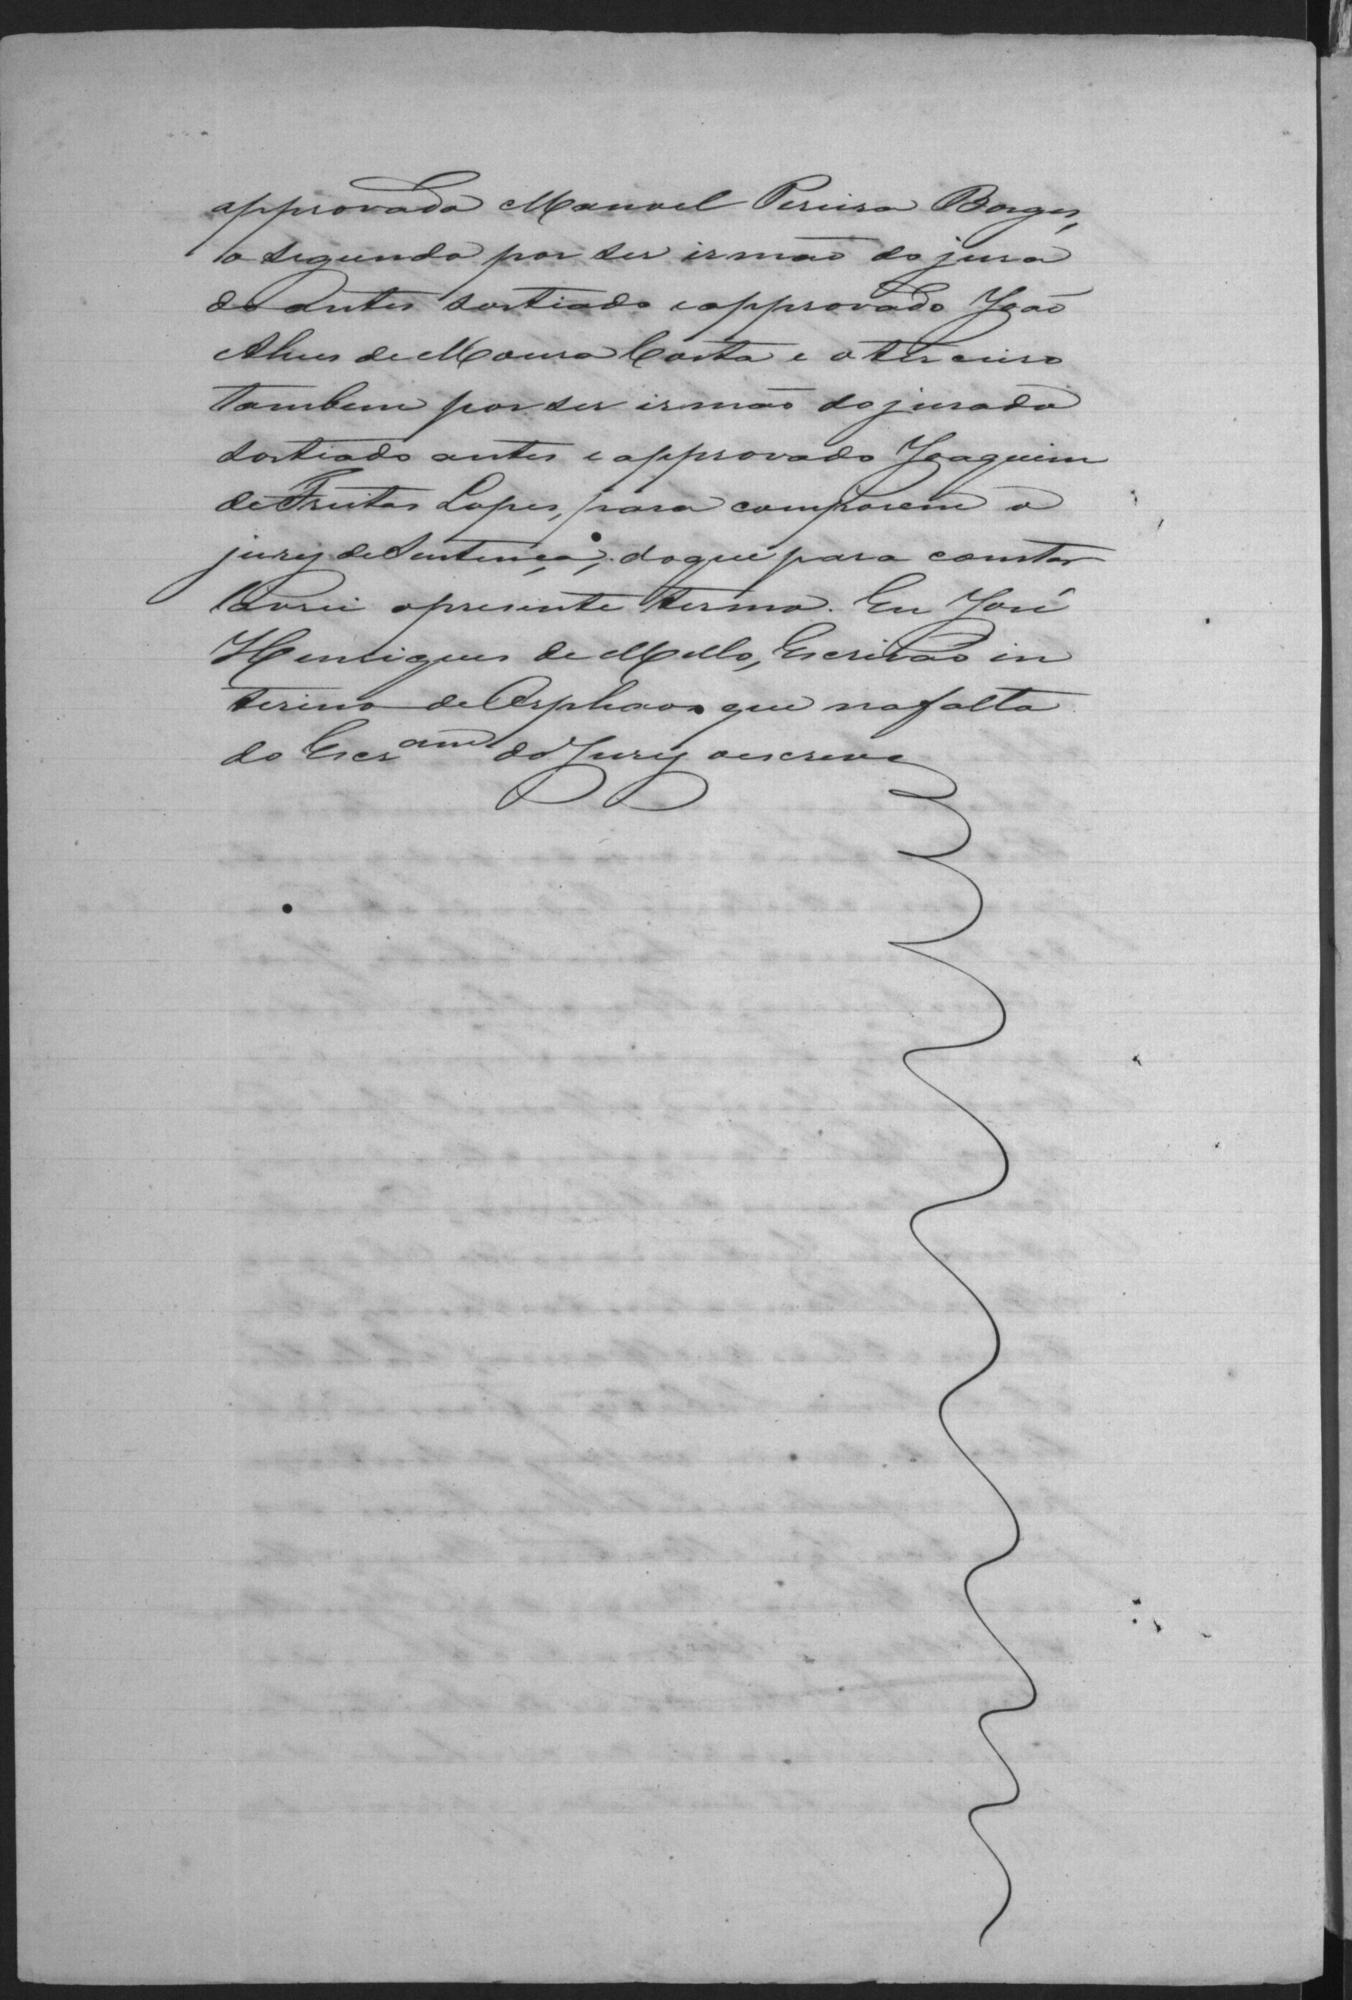 approvado Manoel Pereira Borges,
o segundo por ser irmão do jura
do antes sortiado e approvado João
Alves de Moura Costa e o terceiro
tambem por ser irmão do jurado
sortiado antes e approvado Joaquim
de Freitas Lopes, para comporem o
jury de Sentença; do que para constar
lavrei o presente termo. Eu José
Henriques de Mello, Escrivão in
terino de Orphãos que na falta
do Escr am do Jury o escrevi